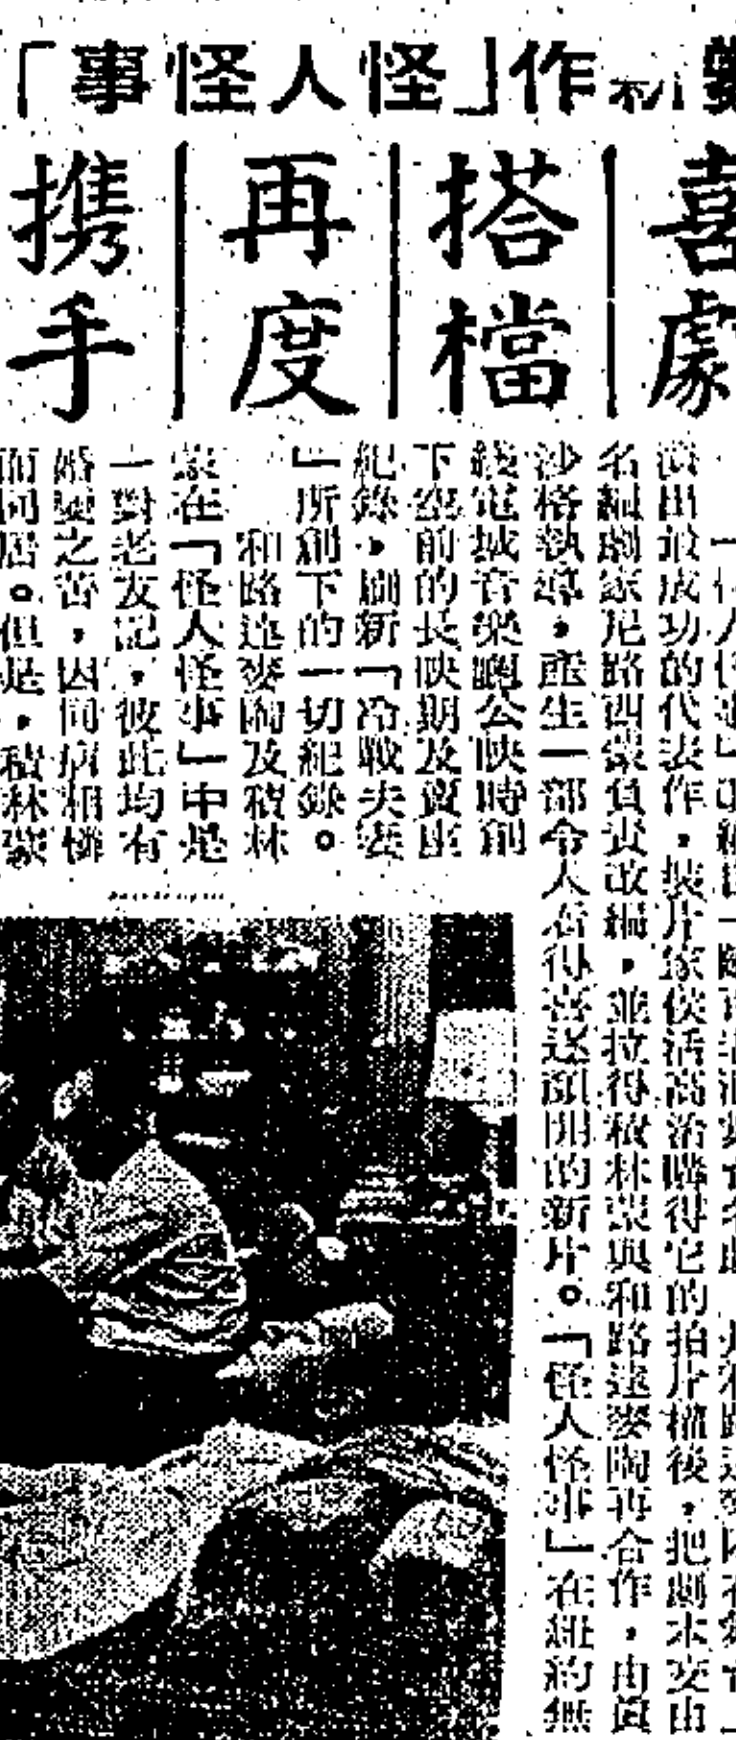 新作「怪人怪事」
喜劇
搭檔
再度
携手
演出最成功的代表作，製片家侯活高治購得它的拍片權後，把劇本交由
名編劇家尼路西蒙負責改編，並拉得積林蒙與和路達麥陶再合作，由眞
沙格執導，產生一部令人看得喜逐顏開的新片。「怪人怪事」在紐約無
綫電城音樂廳公映時創
下空前的長映期及賣座
紀錄，刷新「冷戰夫妻
」所創下的一切紀錄。
和路達麥陶及積林
蒙在「怪人怪事」中是
一對老友記，彼此均有
婚變之苦，因同病相憐
而同居。但是，積林蒙